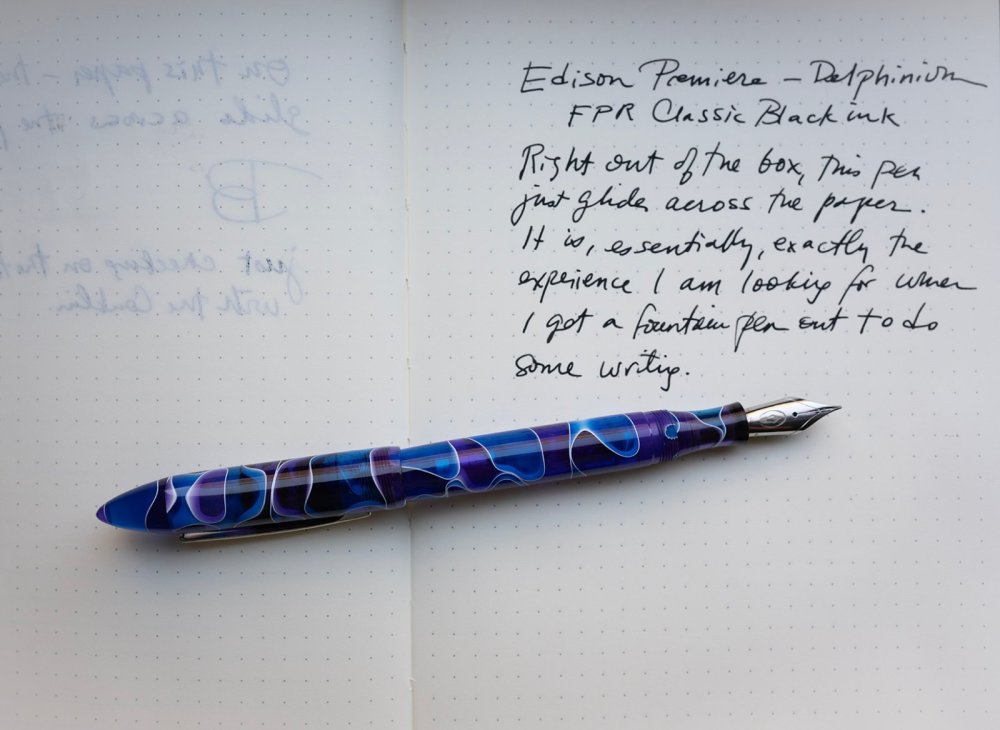 Edison Premiere – Delphinium
FPR Classic Black ink
Right out of the box, this pen
just glides across the paper.
It is, essentially, exactly the
experience I am looking for when
I get a fountain pen out to do
some writing.